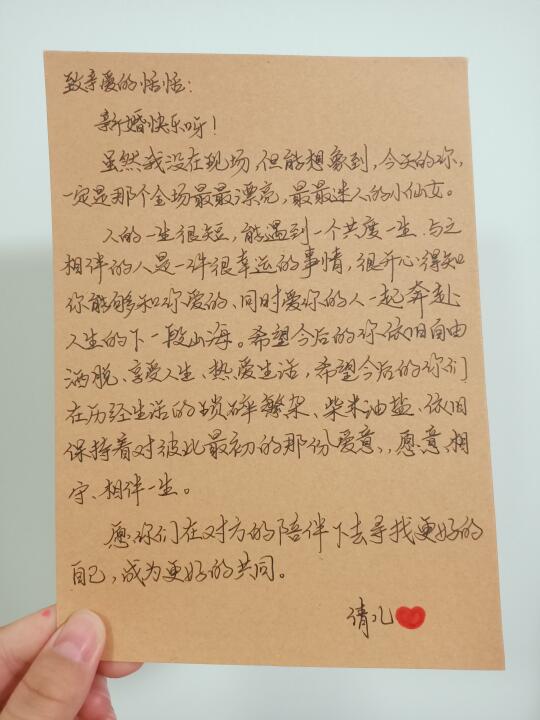 致亲爱的恬恬：
新婚快乐呀！
虽然我没在现场，但能想象到，今天的你，
一定是那个全场最最漂亮，最最迷人的小仙女。
人的一生很短，能遇到一个共度一生、与之
相伴的人是一件很幸运的事情，很开心得知
你能够和你爱的、同时爱你的人一起奔赴
人生的下一段山海。希望今后的你依旧自由
洒脱、享受人生、热爱生活，希望今后的你们
在历经生活的琐碎繁杂、柴米油盐、依旧
保持着对彼此最初的那份爱意，愿意相
守、相伴一生。
愿你们在对方的陪伴下去寻找更好的
自己，成为更好的共同。
倩儿